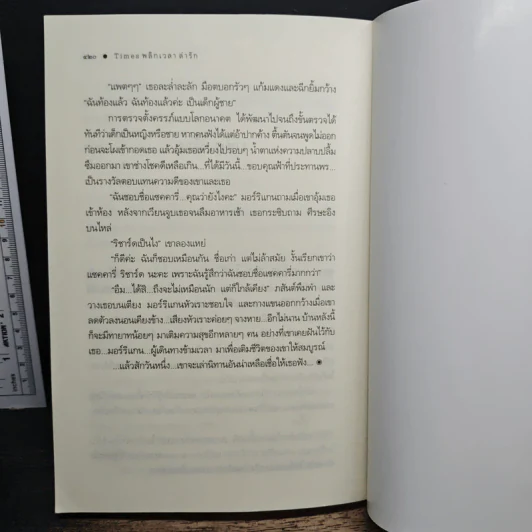 ๔๒๐ ● Times พลิกเวลาล่ารัก
"แพตๆๆ" เธอละล่ำละลัก มือตบอกรัวๆ แก้มแดงและฉีกยิ้มกว้าง
"ฉันท้องแล้ว ฉันท้องแล้วค่ะ เป็นเด็กผู้ชาย"
การตรวจตั้งครรภ์แบบโลกอนาคต ได้พัฒนาไปจนถึงขั้นตรวจได้
ทันทีว่าเด็กเป็นหญิงหรือชาย หากคนฟังได้แต่อ้าปากค้าง ตื้นตันจนพูดไม่ออก
ก่อนจะโผเข้ากอดเธอ แล้วอุ้มเธอเหวี่ยงไปรอบๆ น้ำตาแห่งความปลาบปลื้ม
ซึมออกมา เขาช่างโชคดีเหลือเกิน...ที่ได้มีวันนี้.. ขอบคุณฟ้าที่ประทานพร...
เป็นรางวัลตอบแทนความดีของเขาและเธอ
"ฉันชอบชื่อแซคคารี่...คุณว่ายังไงคะ" มอร์ริแกนถามเมื่อเขาอุ้มเธอ
เข้าห้อง หลังจากเวียนจูบเธอจนลืมอาหารเช้า เธอกระซิบถาม ศีรษะอิง
บนไหล่
"ริชาร์ดเป็นไง" เขาลองแหย่
"ก็ดีค่ะ ฉันก็ชอบเหมือนกัน ชื่อเก่า แต่ไม่ล้าสมัย งั้นเรียกเขาว่า
แซคคารี่ ริชาร์ด นะคะ เพราะฉันรู้สึกว่าฉันชอบชื่อแซคคารี่มากกว่า"
"อืม....ได้สิ...ถึงจะไม่เหมือนนัก แต่ก็ใกล้เคียง" ภสันต์พึมพำ และ
วางเธอบนเตียง มอร์ริแกนหัวเราะชอบใจ และกางแขนออกกว้างเมื่อเขา
ลดตัวลงนอนเคียงข้าง...เสียงหัวเราะค่อยๆ จางหาย...อีกไม่นาน บ้านหลังนี้
ก็จะมีทายาทน้อยๆ มาเติมความสุขอีกหลายๆ คน อย่างที่เขาเคยฝันไว้กับ
เธอ...มอร์ริแกน...ผู้เดินทางข้ามเวลา มาเพื่อเติมชีวิตของเขาให้สมบูรณ์
...แล้วสักวันหนึ่ง...เขาจะเล่านิทานอันน่าเหลือเชื่อให้เธอฟัง... ◉